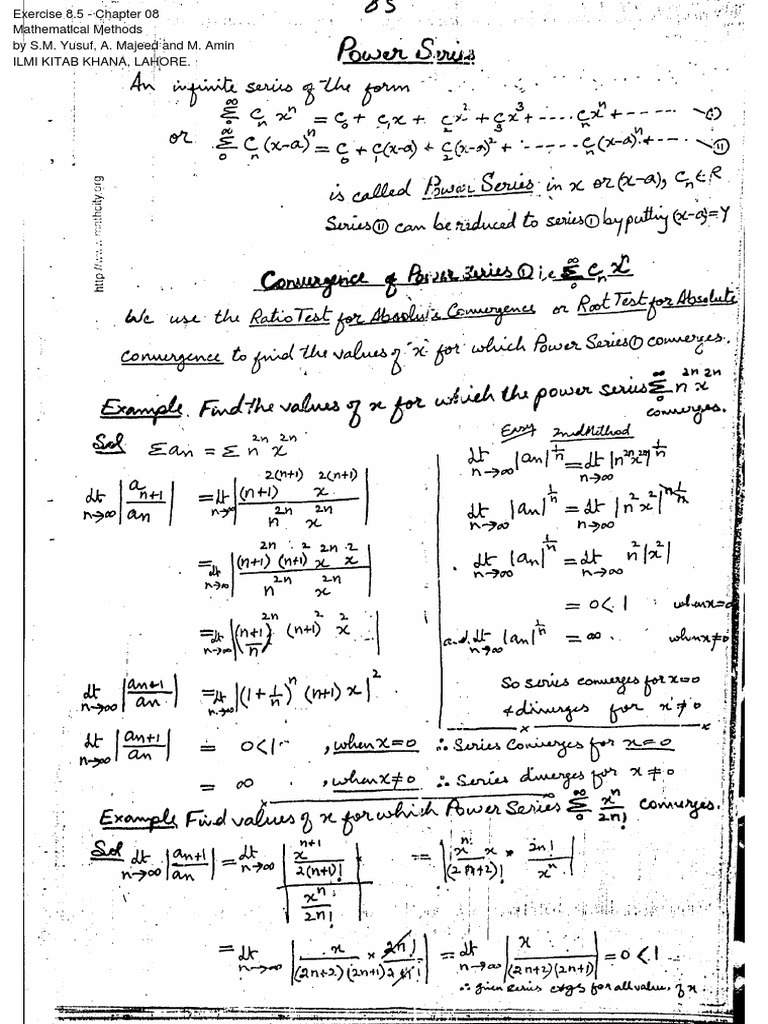 Exercise 8.5 - Chapter 08
Mathematical Methods
by S.M. Yusuf, A. Majeed and M. Amin
ILMI KITAB KHANA, LAHORE.
85
Power Series
An infinite series of the form
∞Σ0 Cₙ xⁿ = C₀ + C₁x + C₂x² + C₃x³ + ..... Cₙxⁿ + ...... (I)
or ∞Σ0 Cₙ (x-a)ⁿ = C₀ + C₁(x-a) + C₂(x-a)² + ...... Cₙ(x-a)ⁿ + ... (II)
is called Power Series in x or (x-a), Cₙ ∈ R
Series (II) can be reduced to series (I) by putting (x-a) = Y
Convergence of Power Series (I) i.e. ∞Σ0 Cₙ xⁿ
We use the Ratio Test for Absolute Convergence or Root Test for Absolute
Convergence to find the values of 'x' for which Power Series (I) converges.
Example. Find the values of x for which the power series ∞Σ0 n²ⁿ x²ⁿ
converges.
Sol Σan = Σ n²ⁿ x²ⁿ
lt n→∞ |aₙ₊₁/an| = lt n→∞ |(n+1)²⁽ⁿ⁺¹⁾ x²⁽ⁿ⁺¹⁾ / n²ⁿ x²ⁿ|
= lt n→∞ |(n+1)²ⁿ (n+1)² x²ⁿ x² / n²ⁿ x²ⁿ|
= lt n→∞ |((n+1)/n)²ⁿ (n+1)² x²|
lt n→∞ |an+1/an| = lt n→∞ |(1 + 1/n)ⁿ (n+1) x|²
lt n→∞ |an+1/an| = 0 < 1 , when x = 0 ∴ Series Converges for x = 0
= ∞ , when x ≠ 0 ∴ Series diverges for x ≠ 0
Easy 2nd Method
lt n→∞ |an|^(1/n) = lt n→∞ |n²ⁿ x²ⁿ|^(1/n)
lt n→∞ |an|^(1/n) = lt n→∞ |n² x²|^(n·1/n)
lt n→∞ |an|^(1/n) = lt n→∞ n² |x²|
= 0 < 1 when x = 0
and lt n→∞ |an|^(1/n) = ∞ when x ≠ 0
So series converges for x = 0
& diverges for x ≠ 0
Example Find values of x for which Power Series ∞Σ0 xⁿ/2n! converges.
Sol lt n→∞ |an+1/an| = lt n→∞ |xⁿ⁺¹/2(n+1)! / xⁿ/2n!| = |xⁿ x/(2n+2)! × 2n!/xⁿ|
= lt n→∞ |x/(2n+2)(2n+1) × 2n!/2n!| = lt n→∞ |x/(2n+2)(2n+1)| = 0 < 1
∴ given series cvgs for all values of x